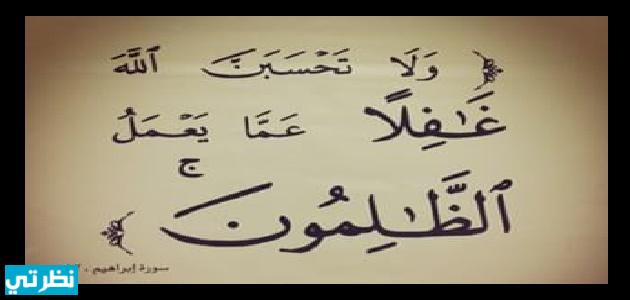 ﴿ وَلَا تَحْسَبَنَّ ٱللَّهَ
غَٰفِلًا عَمَّا يَعْمَلُ
ٱلظَّٰلِمُونَ ۚ ﴾
سورة إبراهيم .
نظرتي